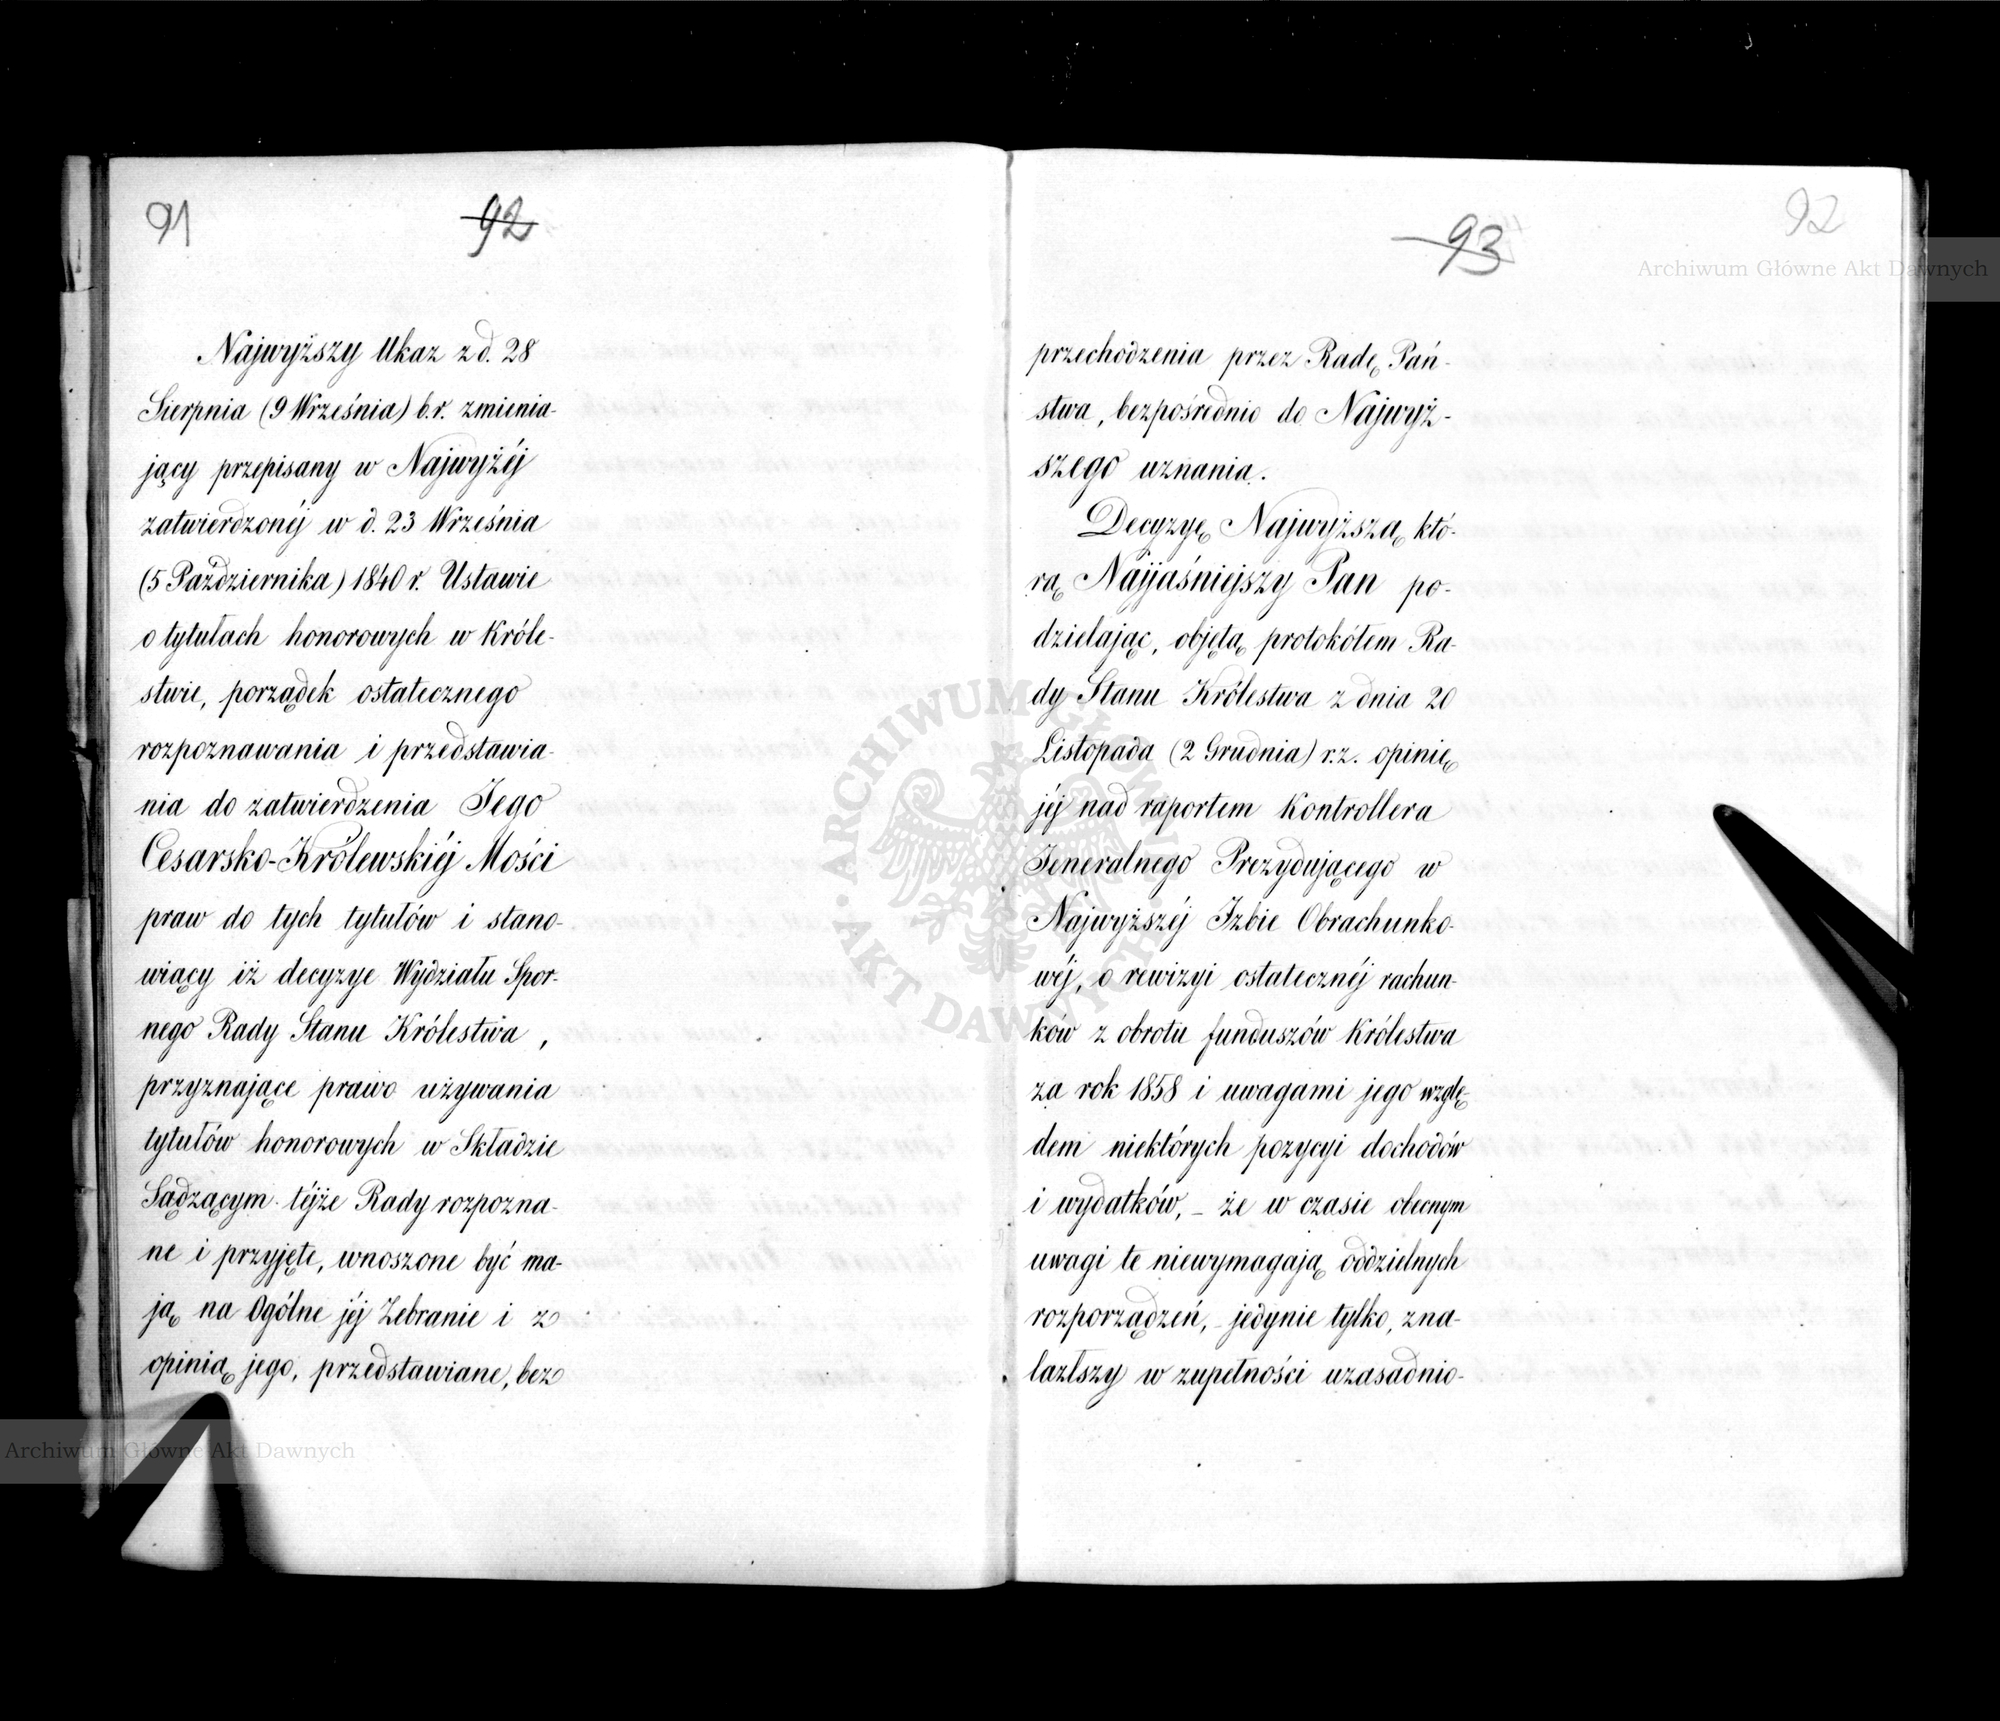 91
92
Najwyższy Ukaz z d. 28
Sierpnia (9 Września) b.r. zmienia-
jący przepisany w Najwyżéj
zatwierdzonéj w d. 23 Września
(5 Października) 1840 r. Ustawie
o tytułach honorowych w Króle-
stwie, porządek ostatecznego
rozpoznawania i przedstawia-
nia do zatwierdzenia Jego
Cesarsko-Królewskiéj Mości
praw do tych tytułów i stano-
wiący iż decyzye Wydziału Spor-
nego Rady Stanu Królestwa,
przyznające prawo używania
tytułów honorowych w Składzie
Sądzącym téjże Rady rozpozna-
ne i przyjęte, wnoszone być ma-
ją na Ogólne jéj Zebranie i z
opinią jego, przedstawiane, bez
93
92
przechodzenia przez Radę Pań-
stwa, bezpośrednio do Najwyż-
szego uznania.
Decyzyę Najwyższą, któ-
rą Najjaśniejszy Pan po-
dzielając, objętą protokółem Ra-
dy Stanu Królestwa z dnia 20
Listopada (2 Grudnia) r.z. opinię
jéj nad raportem Kontrollera
Jeneralnego Prezydującego w
Najwyższéj Izbie Obrachunko-
wéj, o rewizyi ostatecznéj rachun-
ków z obrotu funduszów Królestwa
za rok 1858 i uwagami jego wzglę-
dem niektórych pozycyi dochodów
i wydatków, – że w czasie obecnym
uwagi te niewymagają oddzielnych
rozporządzeń, – jedynie tylko, zna-
lazłszy w zupełności uzasadnio-
Archiwum Główne Akt Dawnych
Archiwum Główne Akt Dawnych
ARCHIWUM GŁÓWNE
AKT DAWNYCH